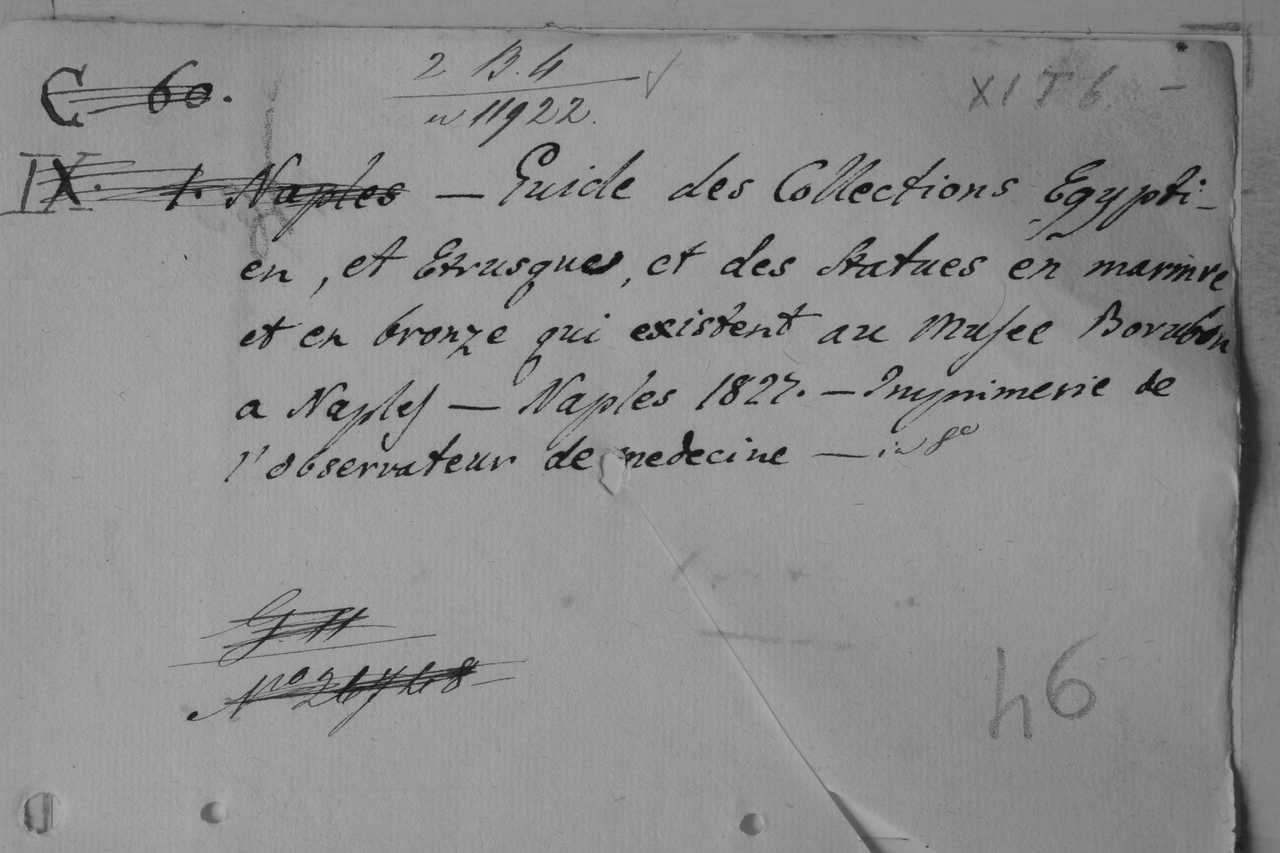 C 60.
2 B. 4
n 11922.
XI T 6 -
IX. 1. Naples — Guide des Collections Egypti-
en, et Etrusques, et des Statues en marmre
et en bronze qui existent au Musee Borubon
a Naples — Naples 1827. — Imprimerie de
l'observateur de medecine — in 8º
G 11
Nº
46